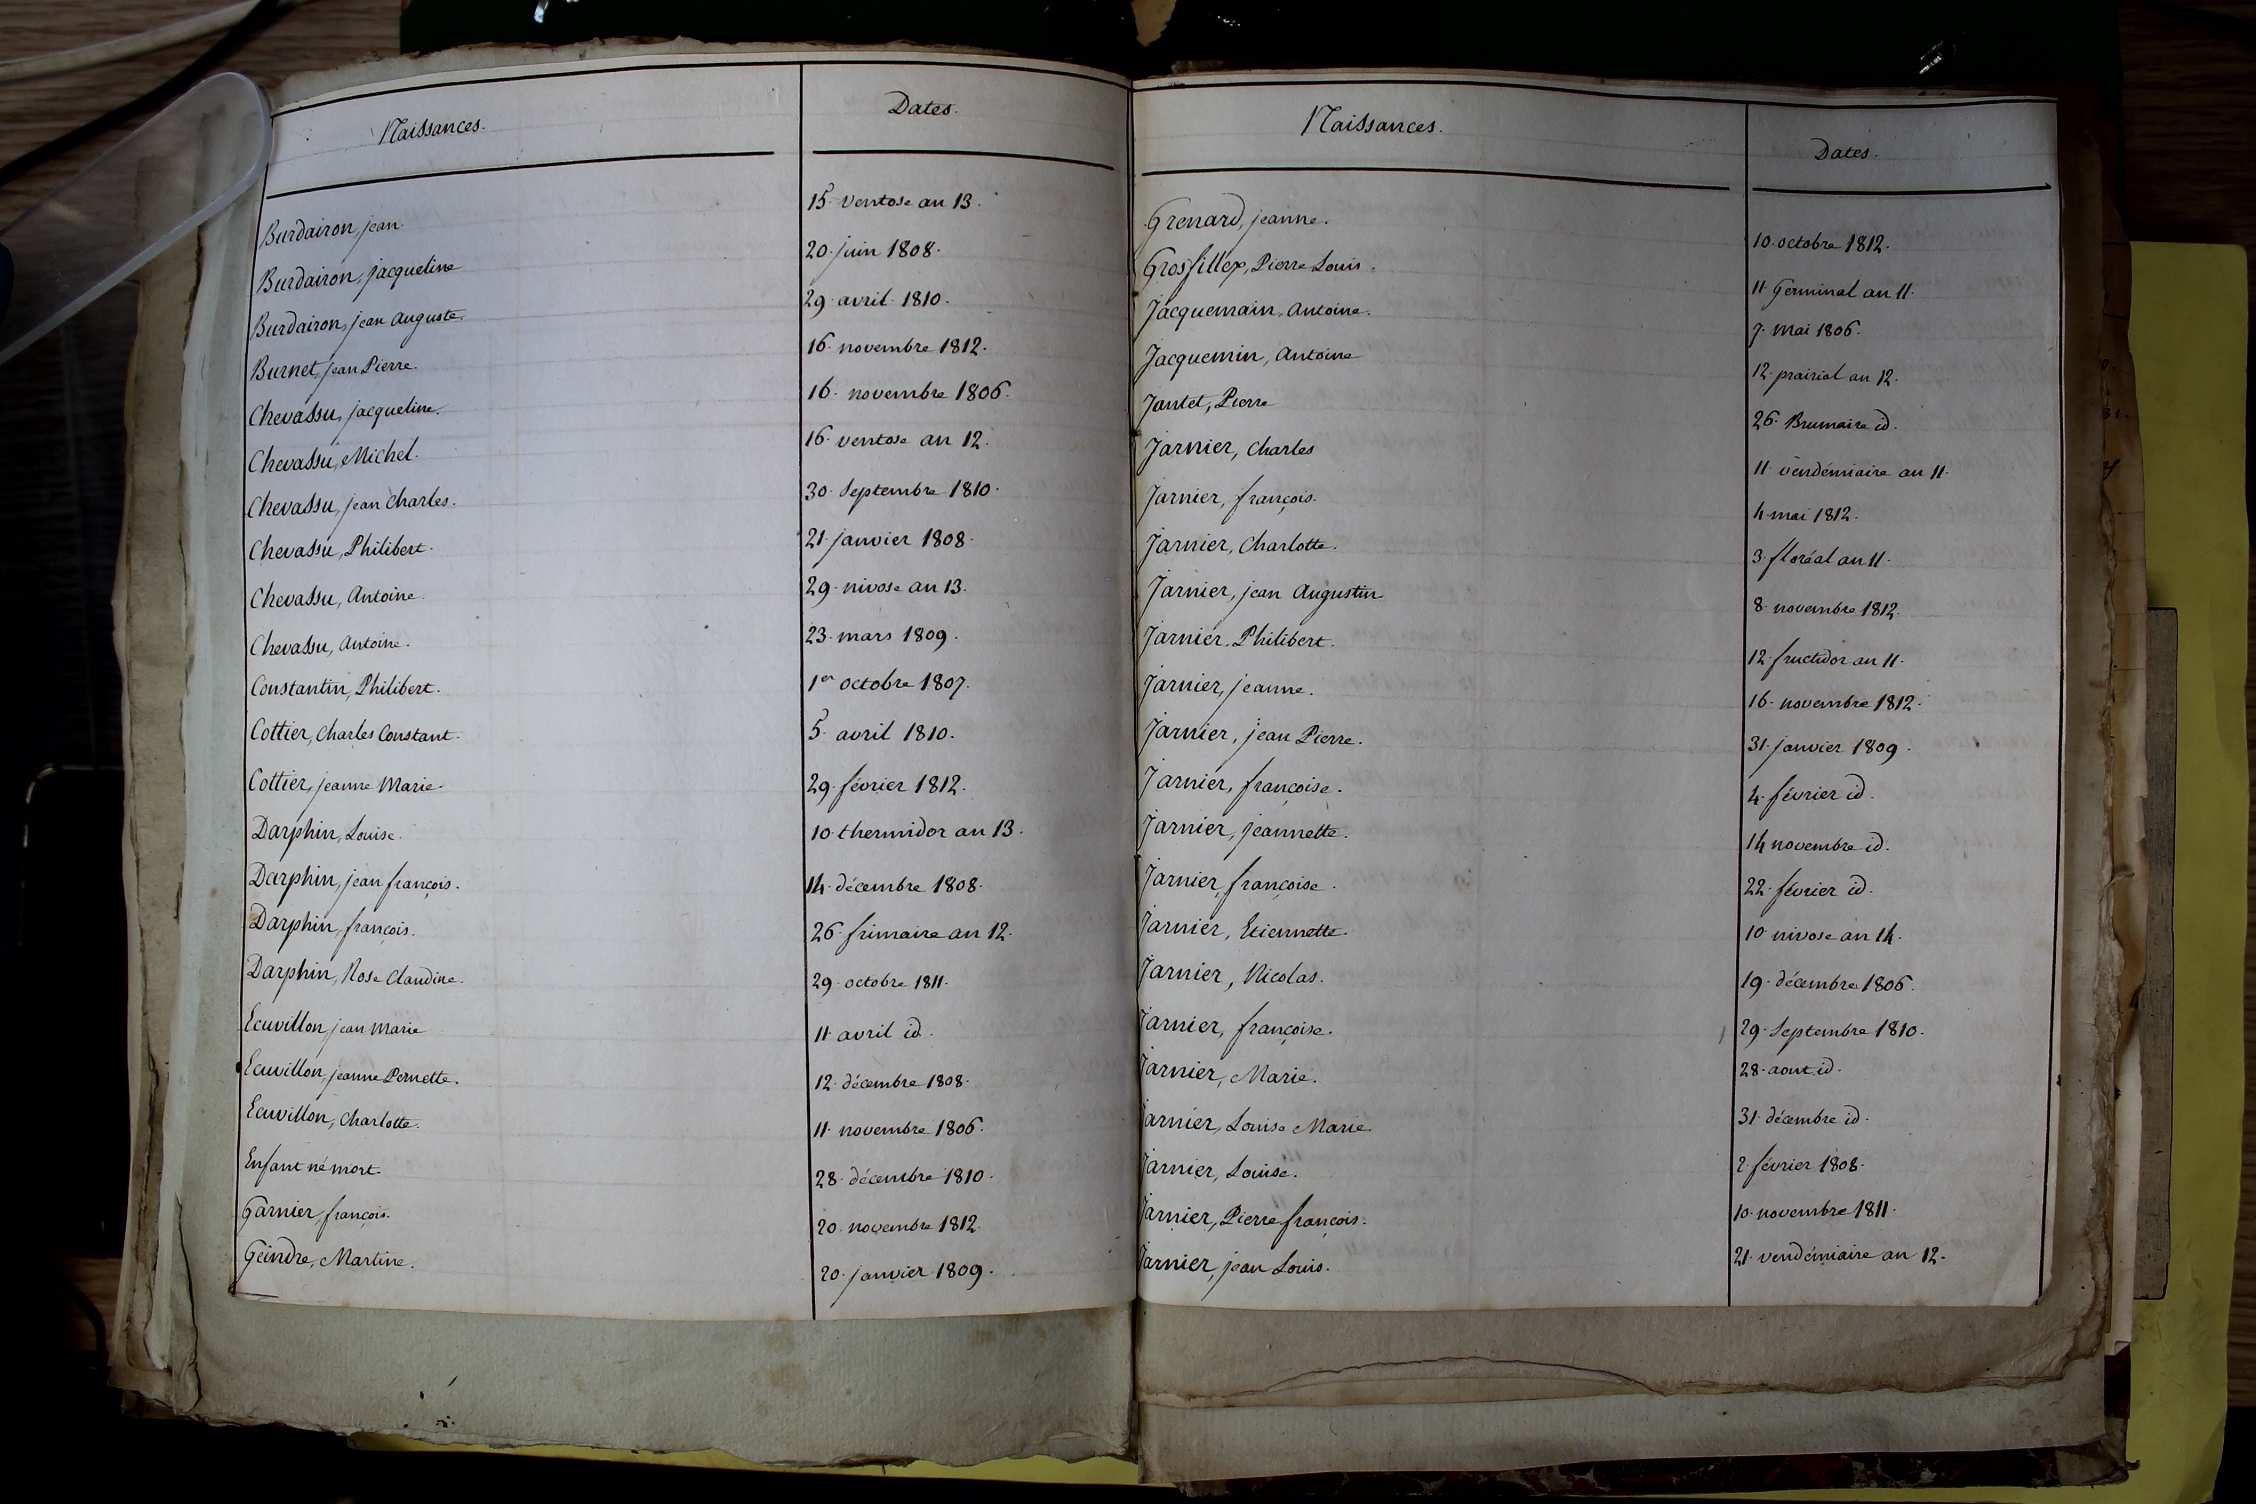 Naissances. Dates.
Burdairon, jean. 15. ventose an 13.
Burdairon, jacqueline 20. juin 1808.
Burdairon, jean auguste. 29. avril. 1810.
Burnet, jean Pierre. 16. novembre 1812.
Chevassu, jacqueline. 16. novembre 1806.
Chevassu, Michel. 16. ventose an 12.
Chevassu, jean Charles. 30. Septembre 1810.
Chevassu, Philibert. 21. janvier 1808.
Chevassu, Antoine. 29. nivose an 13.
Chevassu, Antoine. 23. mars 1809.
Constantin, Philibert. 1er octobre 1807.
Cottier, Charles Constant. 5. avril 1810.
Cottier, jeanne Marie. 29. février 1812.
Darphin, Louise. 10. thermidor an 13.
Darphin, jean françois. 14. décembre 1808.
Darphin, françois. 26. frimaire an 12.
Darphin, Rose Claudine. 29. octobre 1811.
Ecuvillon, jean Marie 11. avril id.
Ecuvillon, jeanne Pernette. 12. décembre 1808.
Ecuvillon, Charlotte. 11. novembre 1806.
Enfant né mort. 28. décembre 1810.
Garnier, françois. 20. novembre 1812.
Geindre, Martine. 20. janvier 1809.
Naissances. Dates.
Grenard, jeanne. 10. octobre 1812.
Grosfillex, Pierre Louis. 11. Germinal an 11.
Jacquemain, Antoine. 7. mai 1806.
Jacquemin, Antoine 12. prairial an 12.
Jantet, Pierre 26. Brumaire id.
Jarnier, Charles 11. vendémiaire an 11.
Jarnier, françois. 4. mai 1812.
Jarnier, Charlotte. 3. floréal an 11.
Jarnier, jean Augustin 8. novembre 1812.
Jarnier, Philibert. 12. fructidor an 11.
Jarnier, jeanne. 16. novembre 1812.
Jarnier, jean Pierre. 31. janvier 1809.
Jarnier, françoise. 4. février id.
Jarnier, jeannette. 14 novembre id.
Jarnier, françoise. 22. février id.
Jarnier, Etiennette. 10 nivose an 14.
Jarnier, Nicolas. 19. décembre 1806.
Jarnier, françoise. 29. Septembre 1810.
Jarnier, Marie. 28. aout id.
Jarnier, Louise Marie 31. décembre id.
Jarnier, Louise. 2. février 1808.
Jarnier, Pierre françois. 10. novembre 1811.
Jarnier, jean Louis. 21. vendémiaire an 12.